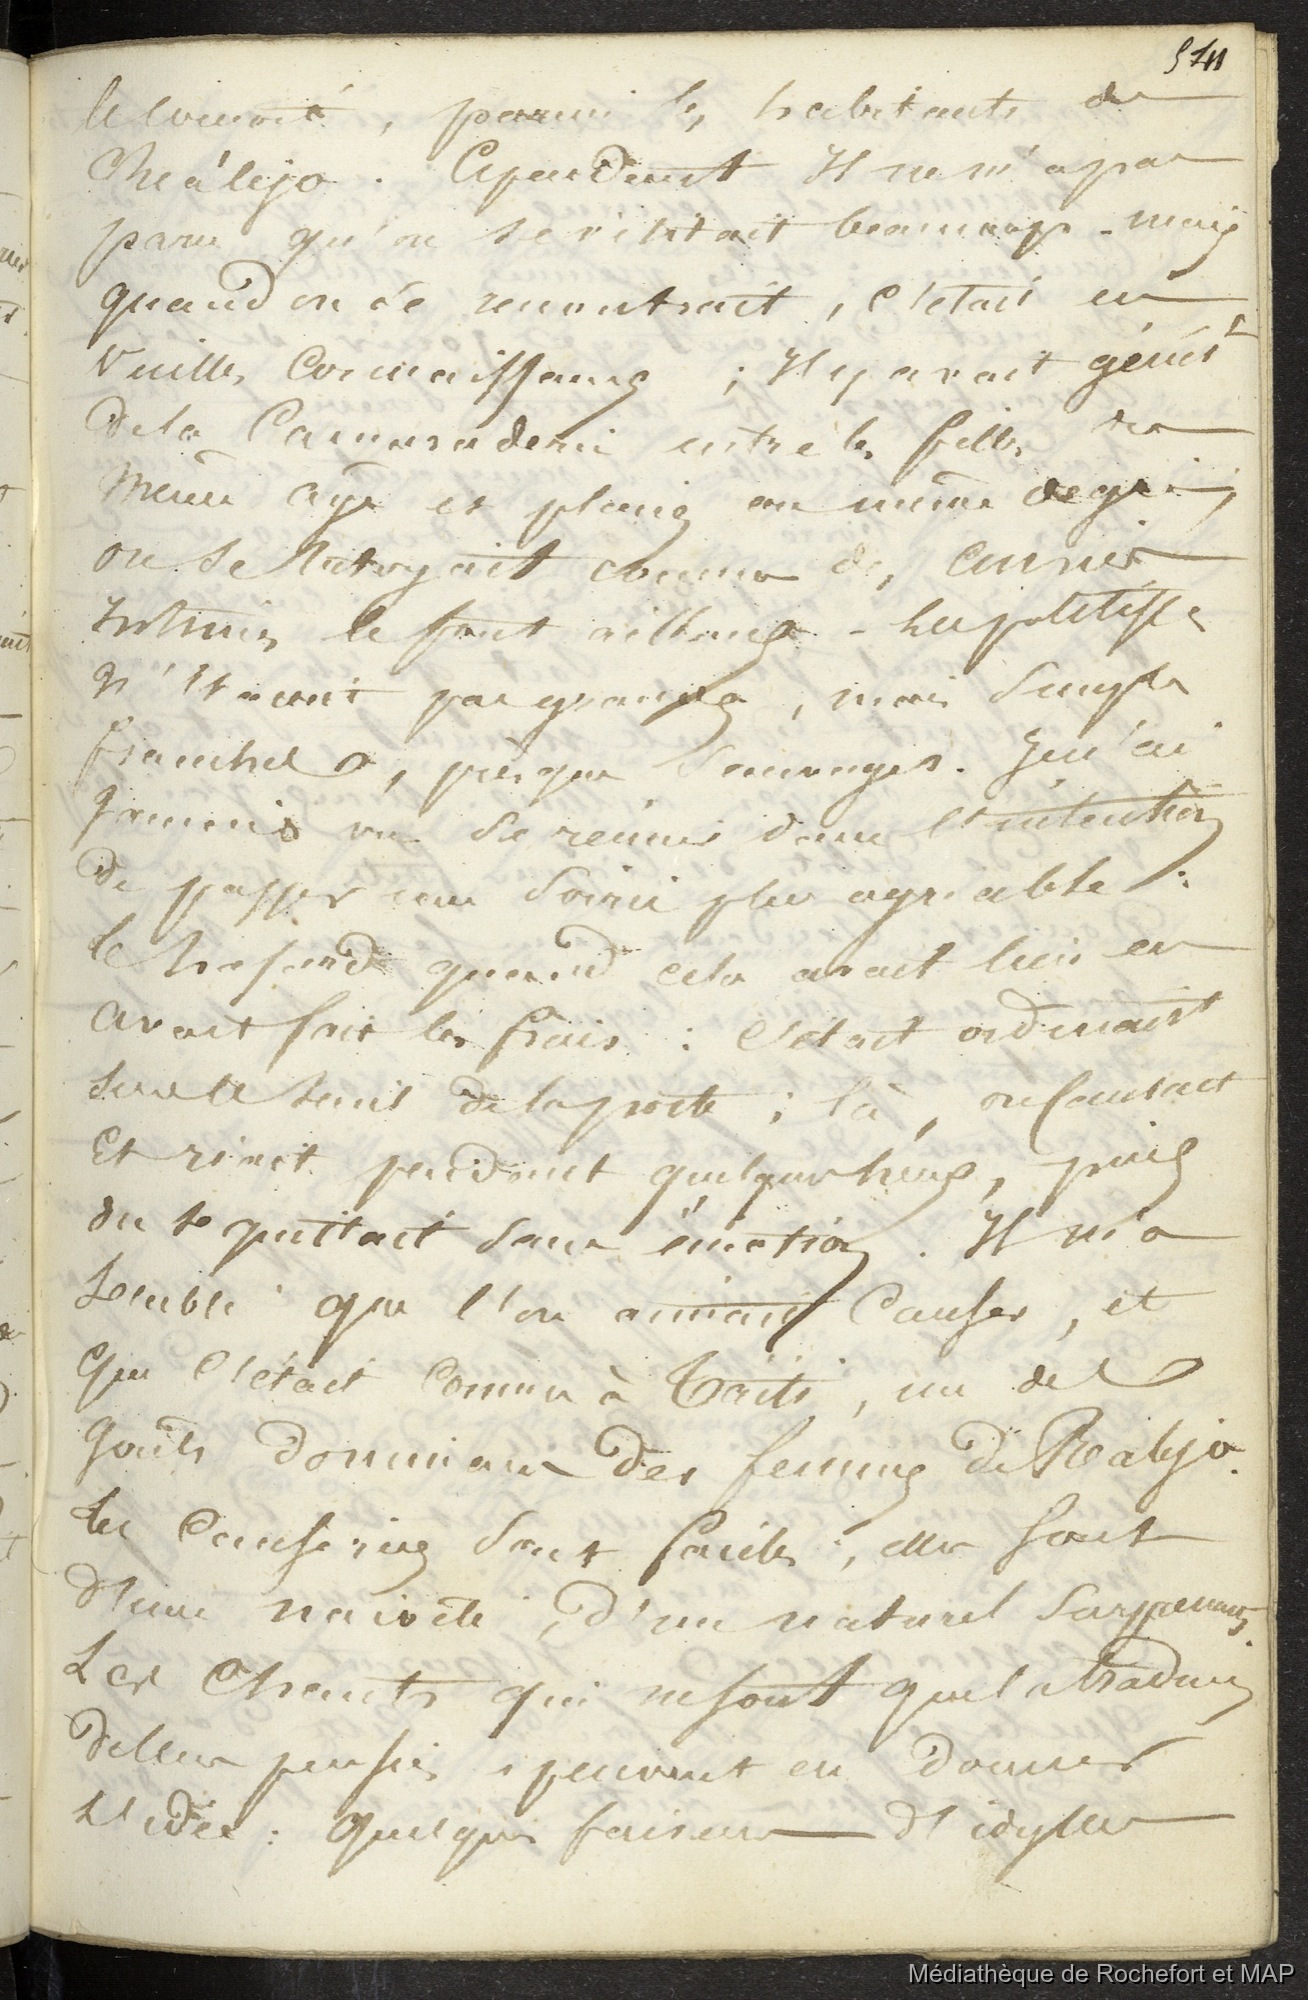 541
parmi les habitants de
Réalejo. Cependant il ne m'a pas
paru qu'on se visitait beaucoup - mais
quand on se rencontrait, c'était en
vieilles connaissances ; Il y avait génért
de la Camaraderie entre les filles de
même âge et placées au même degré ;
on se tutoyait comme des
intimes le font ailleurs - les politesses
n'étaient pas grandes, mais simples
franches, presque sauvages. Je n'ai
jamais vu se réunir dans l'intention
de passer une soirée plus agréable :
le hasard quand cela avait lieu en
avait fait les frais : c'était ordinairt
sur le seuil de la porte ; là, on causait
et riait pendant quelques heures, puis
on se quittait sans émotion. Il m'a
semblé que l'on aimait causer, et
que c'était comme à Taïti, un des
goûts dominans des femmes de Réalejo.
Les causeries sont faciles ; elles sont
d'une naïveté, d'un naturel surprenants.
Les Chants qui ne sont que la traduction
de leurs pensées, peuvent en donner
l'idée : quelques faiseurs d'idylles
Médiathèque de Rochefort et MAP